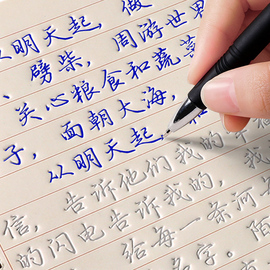 从明天起，做
劈柴，周游世界
关心粮食和蔬菜
子，面朝大海，
从明天起，和
信，告诉他们我的幸福
的闪电告诉我的，我
给每一条河
名字。陌